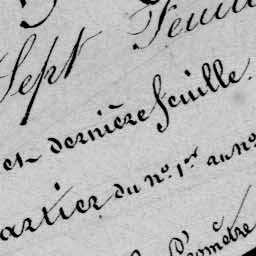 Sept Feuill
et dernière feuille.
artier du nº. 1er au nº